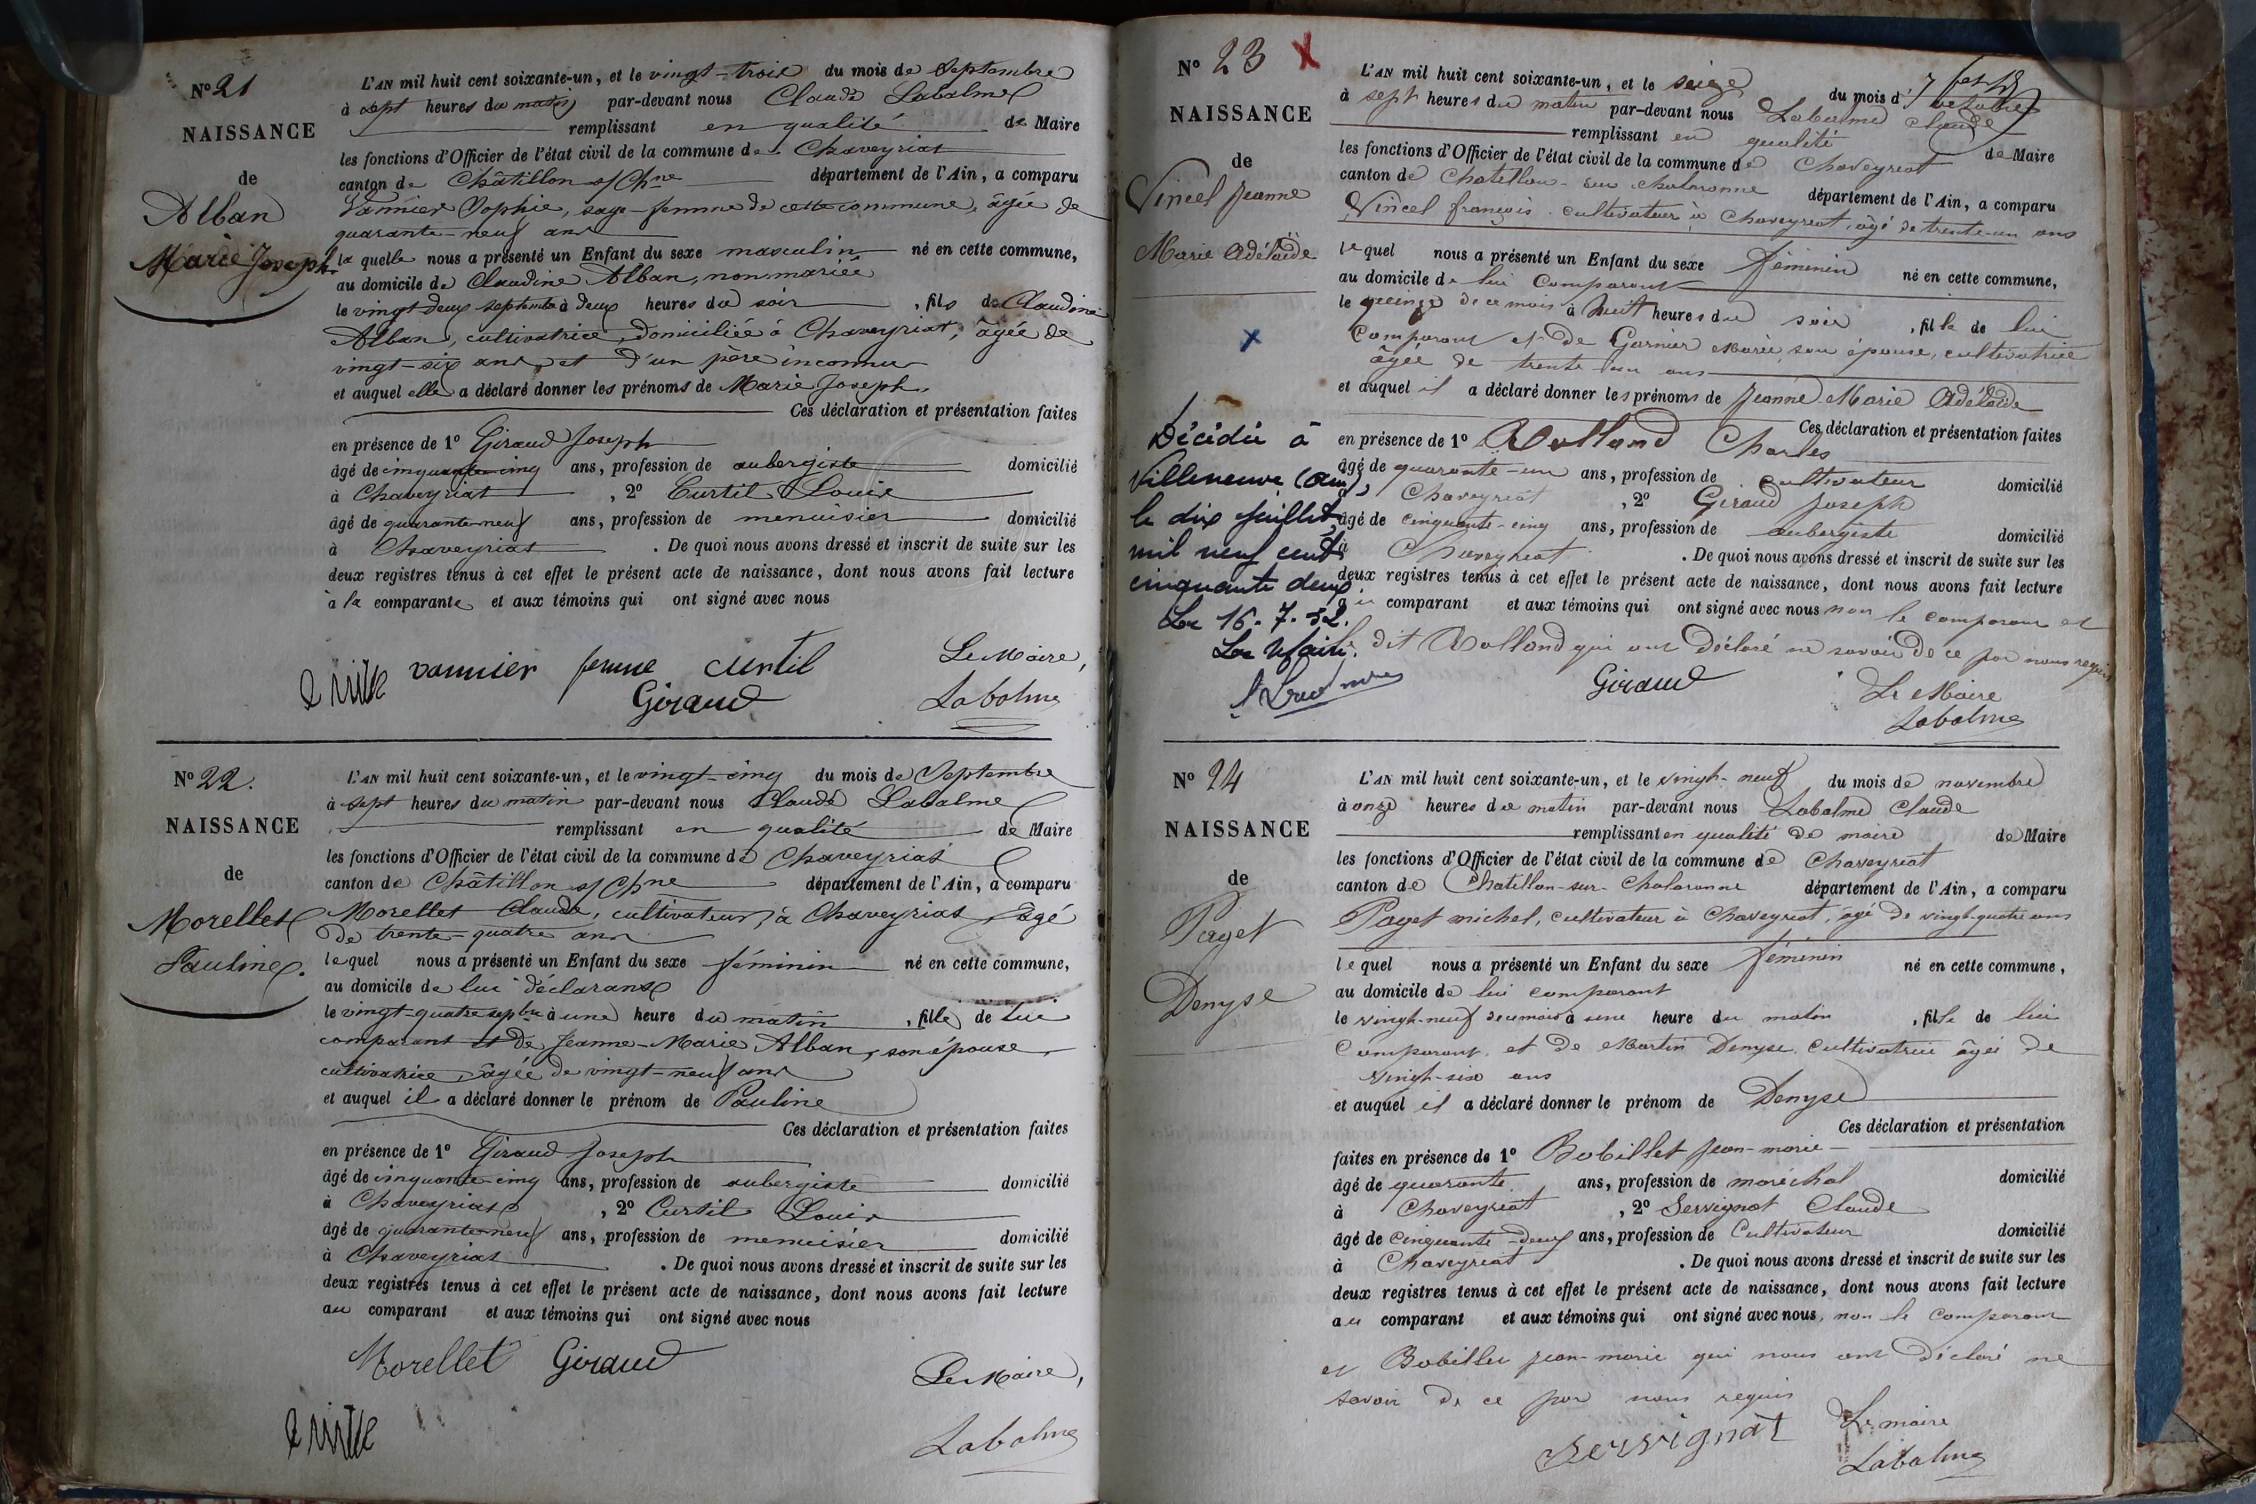 N° 21
NAISSANCE
de
Alban
Marie Joseph
L'AN mil huit cent soixante-un, et le vingt-trois du mois de Septembre
à sept heures du matin par-devant nous Claude Labalme
remplissant en qualité de Maire
les fonctions d'Officier de l'état civil de la commune de Chaveyriat
canton de Châtillon s/ Chne département de l'Ain, a comparu
Vannier Sophie, sage-femme de cette commune, âgée de
quarante-neuf ans
la quelle nous a présenté un Enfant du sexe masculin né en cette commune,
au domicile de Claudine Alban, non mariée
le vingt deux septembre à deux heures du soir, fils de Claudine
Alban, cultivatrice, domiciliée à Chaveyriat, âgée de
vingt-six ans, et d'un père inconnu
et auquel elle a déclaré donner les prénoms de Marie Joseph
Ces déclaration et présentation faites
en présence de 1° Giraud Joseph
âgé de cinquante-cinq ans, profession de aubergiste domicilié
à Chaveyriat, 2° Curtil Louis
âgé de quarante-neuf ans, profession de menuisier domicilié
à Chaveyriat. De quoi nous avons dressé et inscrit de suite sur les
deux registres tenus à cet effet le présent acte de naissance, dont nous avons fait lecture
à la comparante et aux témoins qui ont signé avec nous
vannier femme curtil
Le Maire,
Giraud
Labalme
N° 22.
NAISSANCE
de
Morellet
Pauline.
L'AN mil huit cent soixante-un, et le vingt-cinq du mois de Septembre
à sept heures du matin par-devant nous Claude Labalme
remplissant en qualité de Maire
les fonctions d'Officier de l'état civil de la commune de Chaveyriat
canton de Châtillon s/ Chne département de l'Ain, a comparu
Morellet Claude, cultivateur, à Chaveyriat, âgé
de trente-quatre ans
lequel nous a présenté un Enfant du sexe féminin né en cette commune,
au domicile de lui déclarant
le vingt-quatre sepbre à une heure du matin, fille de lui
comparant et de Jeanne-Marie Alban, son épouse,
cultivatrice, âgée de vingt-neuf ans
et auquel il a déclaré donner le prénom de Pauline
Ces déclaration et présentation faites
en présence de 1° Giraud Joseph
âgé de cinquante-cinq ans, profession de aubergiste domicilié
à Chaveyriat, 2° Curtil Louis
âgé de quarante-neuf ans, profession de menuisier domicilié
à Chaveyriat. De quoi nous avons dressé et inscrit de suite sur les
deux registres tenus à cet effet le présent acte de naissance, dont nous avons fait lecture
au comparant et aux témoins qui ont signé avec nous
Morellet Giraud
Le Maire,
Labalme
N° 23 X
NAISSANCE
de
Vincel Jeanne
Marie Adélaïde
x
Décédée à
Villeneuve (Ain),
le dix juillet
mil neuf cent
cinquante deux.
Le 16-7-52.
Le Maire.
L'AN mil huit cent soixante-un, et le seize du mois d'octobre
à sept heures du matin par-devant nous Labalme Claude
remplissant en qualité de Maire
les fonctions d'Officier de l'état civil de la commune de Chaveyriat
canton de Chatillon-sur-Chalaronne département de l'Ain, a comparu
Vincel françois cultivateur à Chaveyriat, âgé de trente-un ans
lequel nous a présenté un Enfant du sexe féminin né en cette commune,
au domicile de lui comparant
le quinze de ce mois à huit heures du soir, fille de lui
comparant et de Garnier Marie son épouse, cultivatrice
âgée de trente-un ans
et auquel il a déclaré donner les prénoms de Jeanne Marie Adélaïde
Ces déclaration et présentation faites
en présence de 1° Rolland Charles
âgé de quarante-un ans, profession de cultivateur domicilié
à Chaveyriat, 2° Giraud Joseph
âgé de cinquante-cinq ans, profession de aubergiste domicilié
à Chaveyriat. De quoi nous avons dressé et inscrit de suite sur les
deux registres tenus à cet effet le présent acte de naissance, dont nous avons fait lecture
au comparant et aux témoins qui ont signé avec nous non le comparant et
le dit Rolland qui ont déclaré ne savoir de ce par nous requis
Giraud
Le Maire
Labalme
N° 24
NAISSANCE
de
Paget
Denyse
L'AN mil huit cent soixante-un, et le vingt-neuf du mois de novembre
à onze heures du matin par-devant nous Labalme Claude
remplissant en qualité de maire de Maire
les fonctions d'Officier de l'état civil de la commune de Chaveyriat
canton de Chatillon-sur-Chalaronne département de l'Ain, a comparu
Paget michel, cultivateur à Chaveyriat, âgé de vingt-quatre ans
lequel nous a présenté un Enfant du sexe féminin né en cette commune,
au domicile de lui comparant
le vingt-neuf de ce mois à une heure du matin, fille de lui
comparant, et de Martin Denyse cultivatrice âgée de
vingt-six ans
et auquel il a déclaré donner le prénom de Denyse
Ces déclaration et présentation
faites en présence de 1° Bobillet jean-marie
âgé de quarante ans, profession de maréchal domicilié
à Chaveyriat, 2° Servignat Claude
âgé de cinquante-deux ans, profession de Cultivateur domicilié
à Chaveyriat. De quoi nous avons dressé et inscrit de suite sur les
deux registres tenus à cet effet le présent acte de naissance, dont nous avons fait lecture
au comparant et aux témoins qui ont signé avec nous, non le comparant
et Bobillet jean-marie qui nous ont déclaré ne
savoir de ce par nous requis
Servignat
Le maire
Labalme